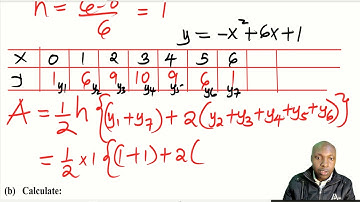 h = (6-0)/6 = 1
y = -x² + 6x + 1
x 0 1 2 3 4 5 6
y 1 6 9 10 9 6 1
y₁ y₂ y₃ y₄ y₅ y₆ y₇
A = 1/2 h {(y₁+y₇) + 2(y₂+y₃+y₄+y₅+y₆)}
= 1/2 × 1 {(1+1) + 2(
(b) Calculate: